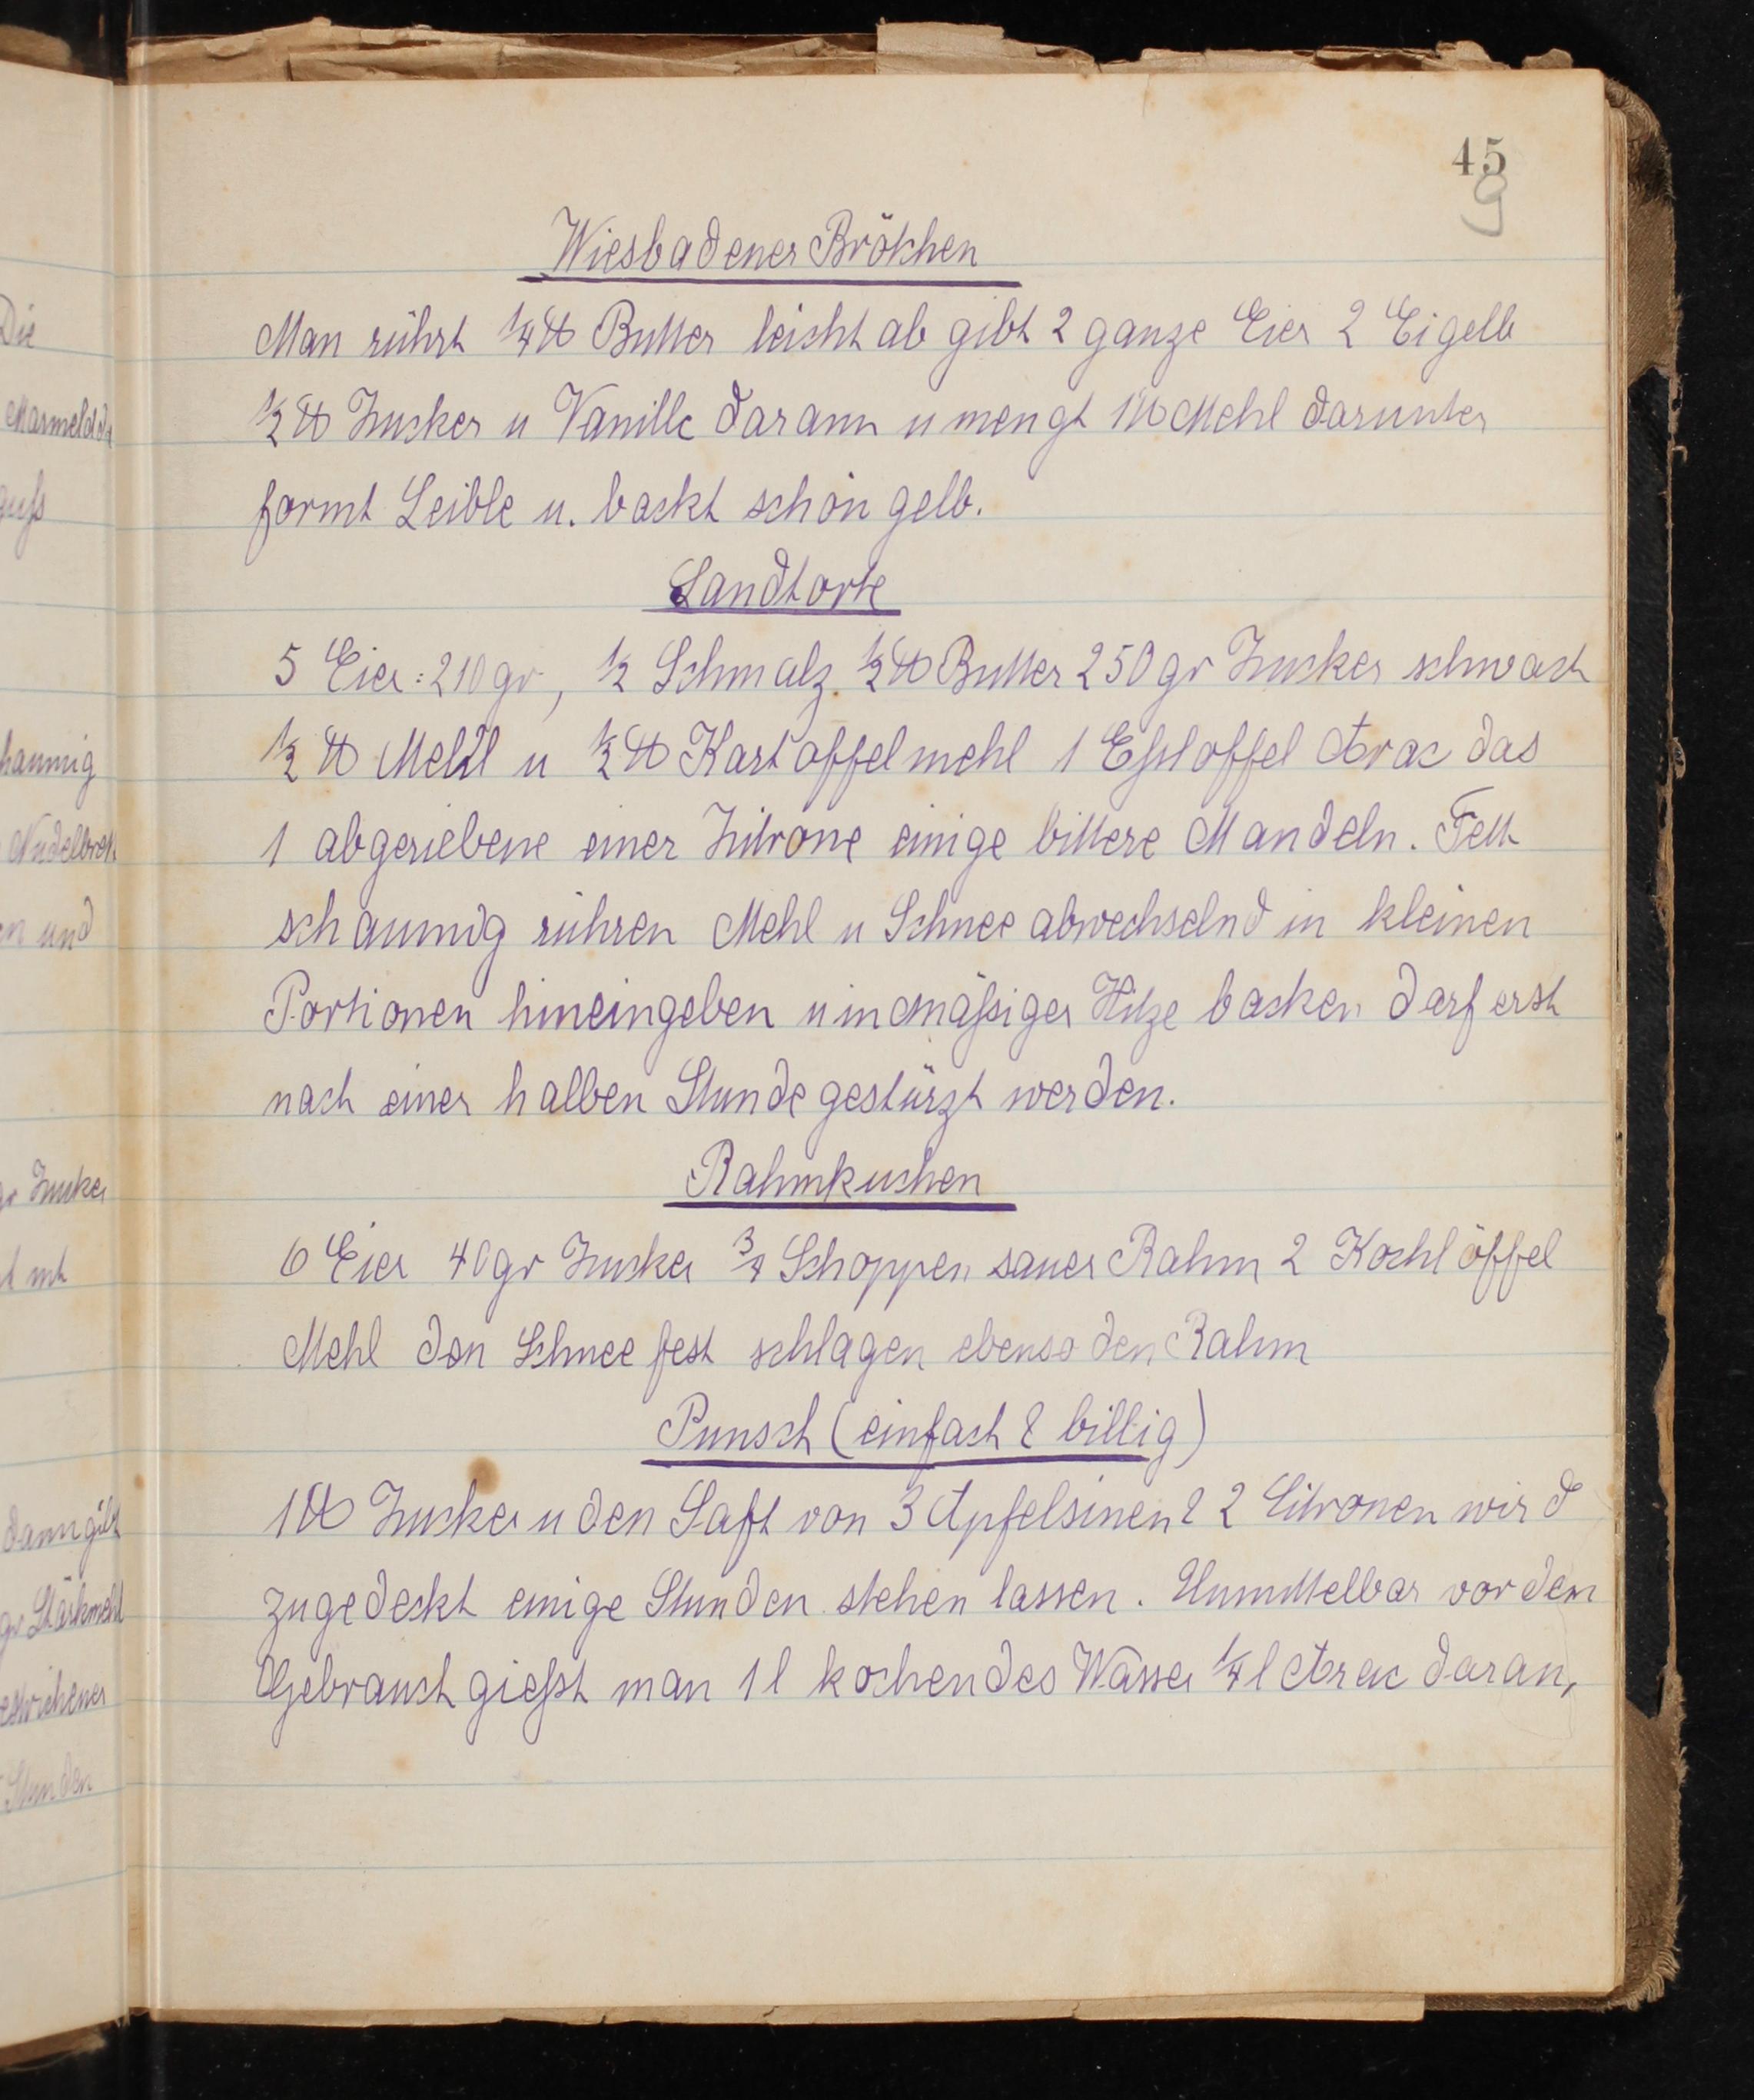 45
9
Wiesbadener Brötchen
Man rührt 1/4 ℔ Butter leicht ab gibt 2 ganze Eier 2 Eigelb
1/2 ℔ Zucker u Vanille darann u mengt 1 ℔ Mehl darunter
formt Leible u. backt schön gelb.
Sandtorte
5 Eier: 210 gr, 1/2 Schmalz. 1/2 ℔ Butter 250 gr Zucker schwach
1/2 ℔ Mehl u 1/2 ℔ Kartoffelmehl 1 Eßloffel Arac das
1 abgeriebene einer Zitrone einige bittere Mandeln. Fett
schaumig rühren Mehl u Schnee abwechselnd in kleinen
Portionen hineingeben u in mäßiger Hitze backen darf erst
nach einer halben Stunde gestürzt werden.
Rahmkuchen
6 Eier 40 gr Zucker 3/4 Schoppen sauer Rahm 2 Kochlöffel
Mehl den Schnee fest schlagen ebenso den Rahm
Punsch (einfach & billig)
1 ℔ Zucker u den Saft von 3 Apfelsinen & 2 Citronen wird
zugedeckt einige Stunden stehen lassen. Unmittelbar vor dem
Gebrauch gießt man 1 l kochendes Wasser 1/4 l Arac daran,
Die
Marmelade
guß
haumig
Nudelbrett
en und
gr Zucker
dann gibt
gr Stärkmehl
Stunden